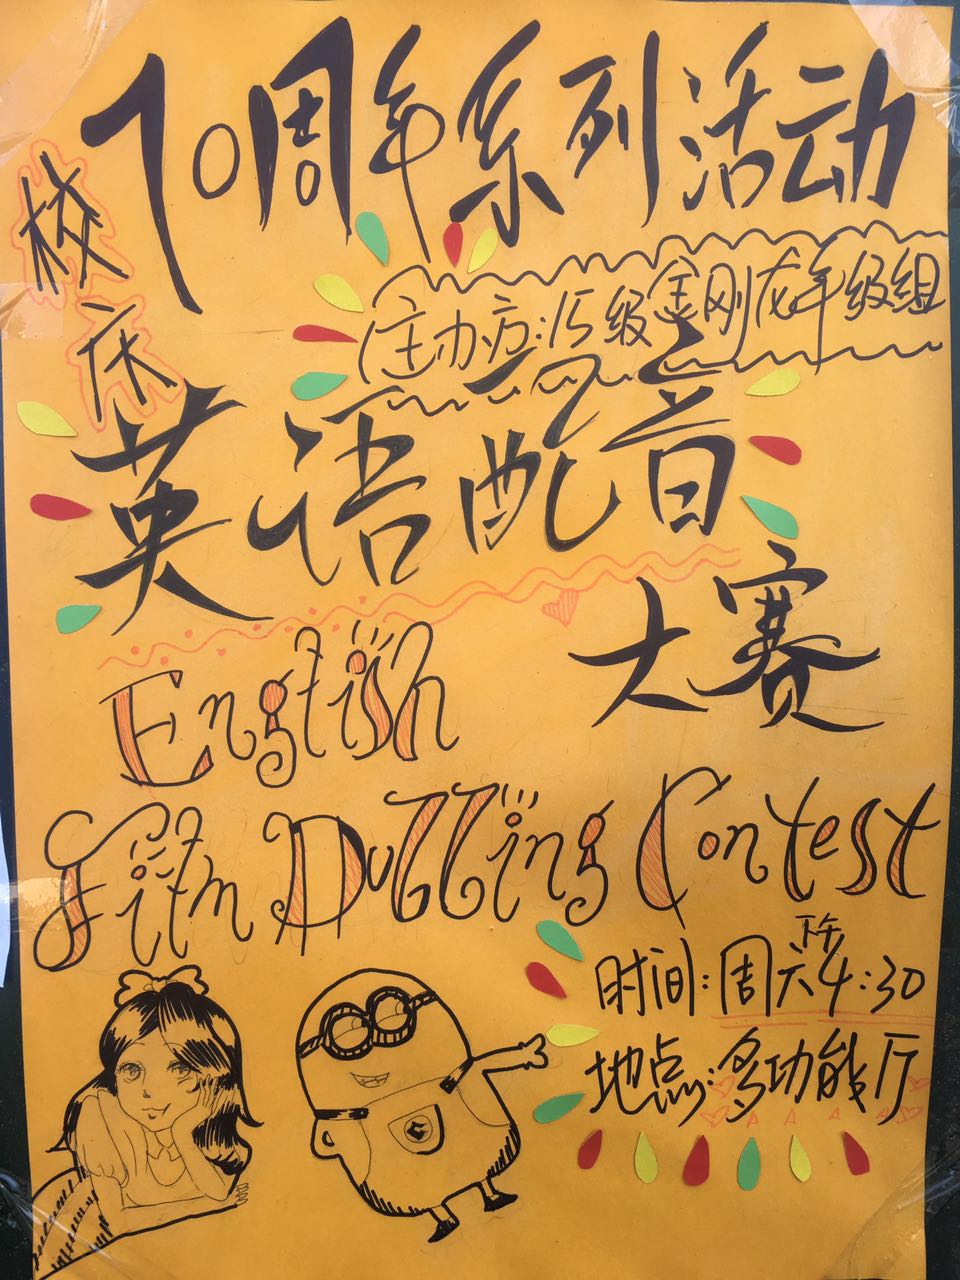 校庆
70周年系列活动
主办方:15级金刚龙年级组
英语配音
大赛
English
Film Dubbing Contest
时间:周六下午4:30
地点:多功能厅